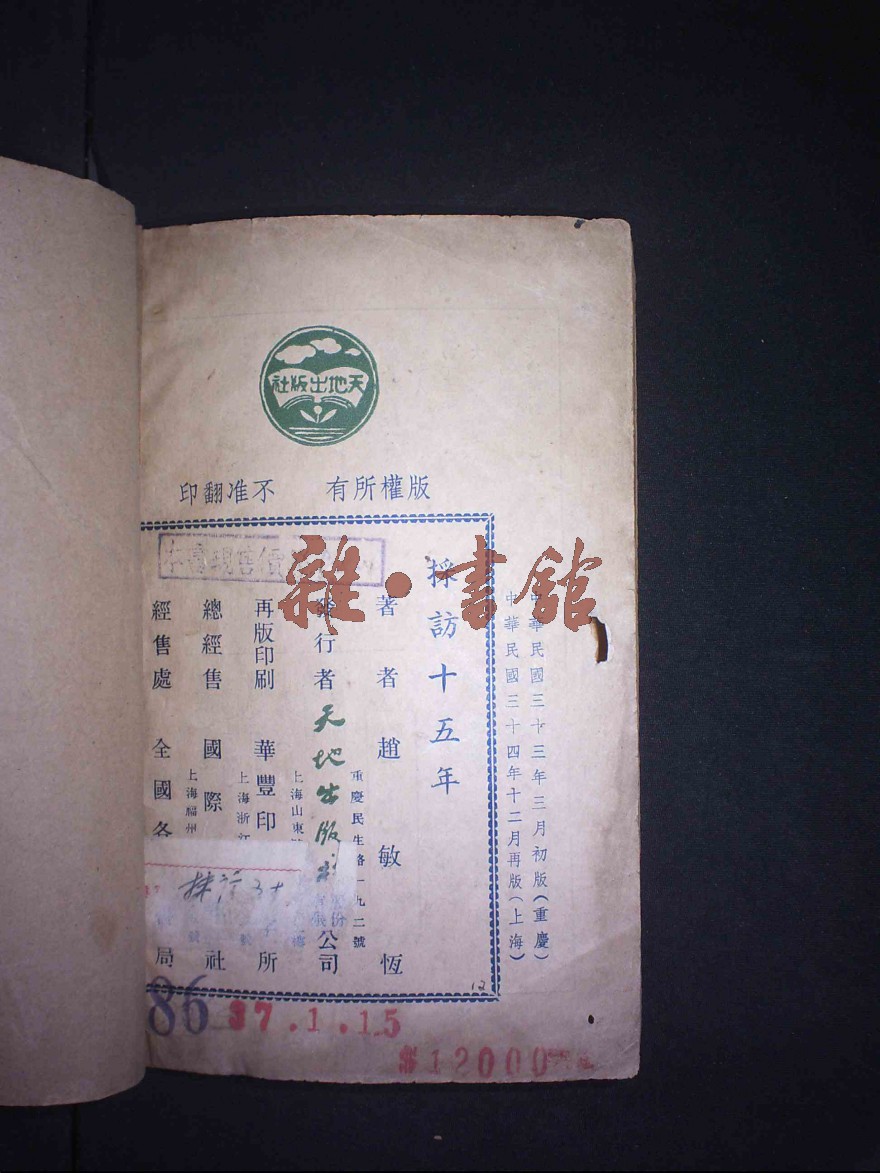 天地出版社
版權所有　不准翻印
中華民國三十三年三月初版(重慶)
中華民國三十四年十二月再版(上海)
採訪十五年
著者　趙敏恆
重慶民生路一九二號
發行者　天地出版社　公司
上海山東
再版印刷　華豐印　所
上海浙江
總經售　國際　社
上海福州
經售處　全國各　局
雜·書館
12
86
37.1.15
12000